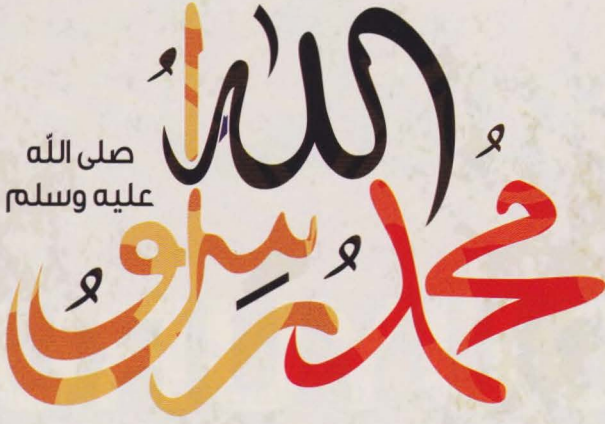 مُحمدُ رسِولُ اللهُ
صلى اللّه
عليه وسلم